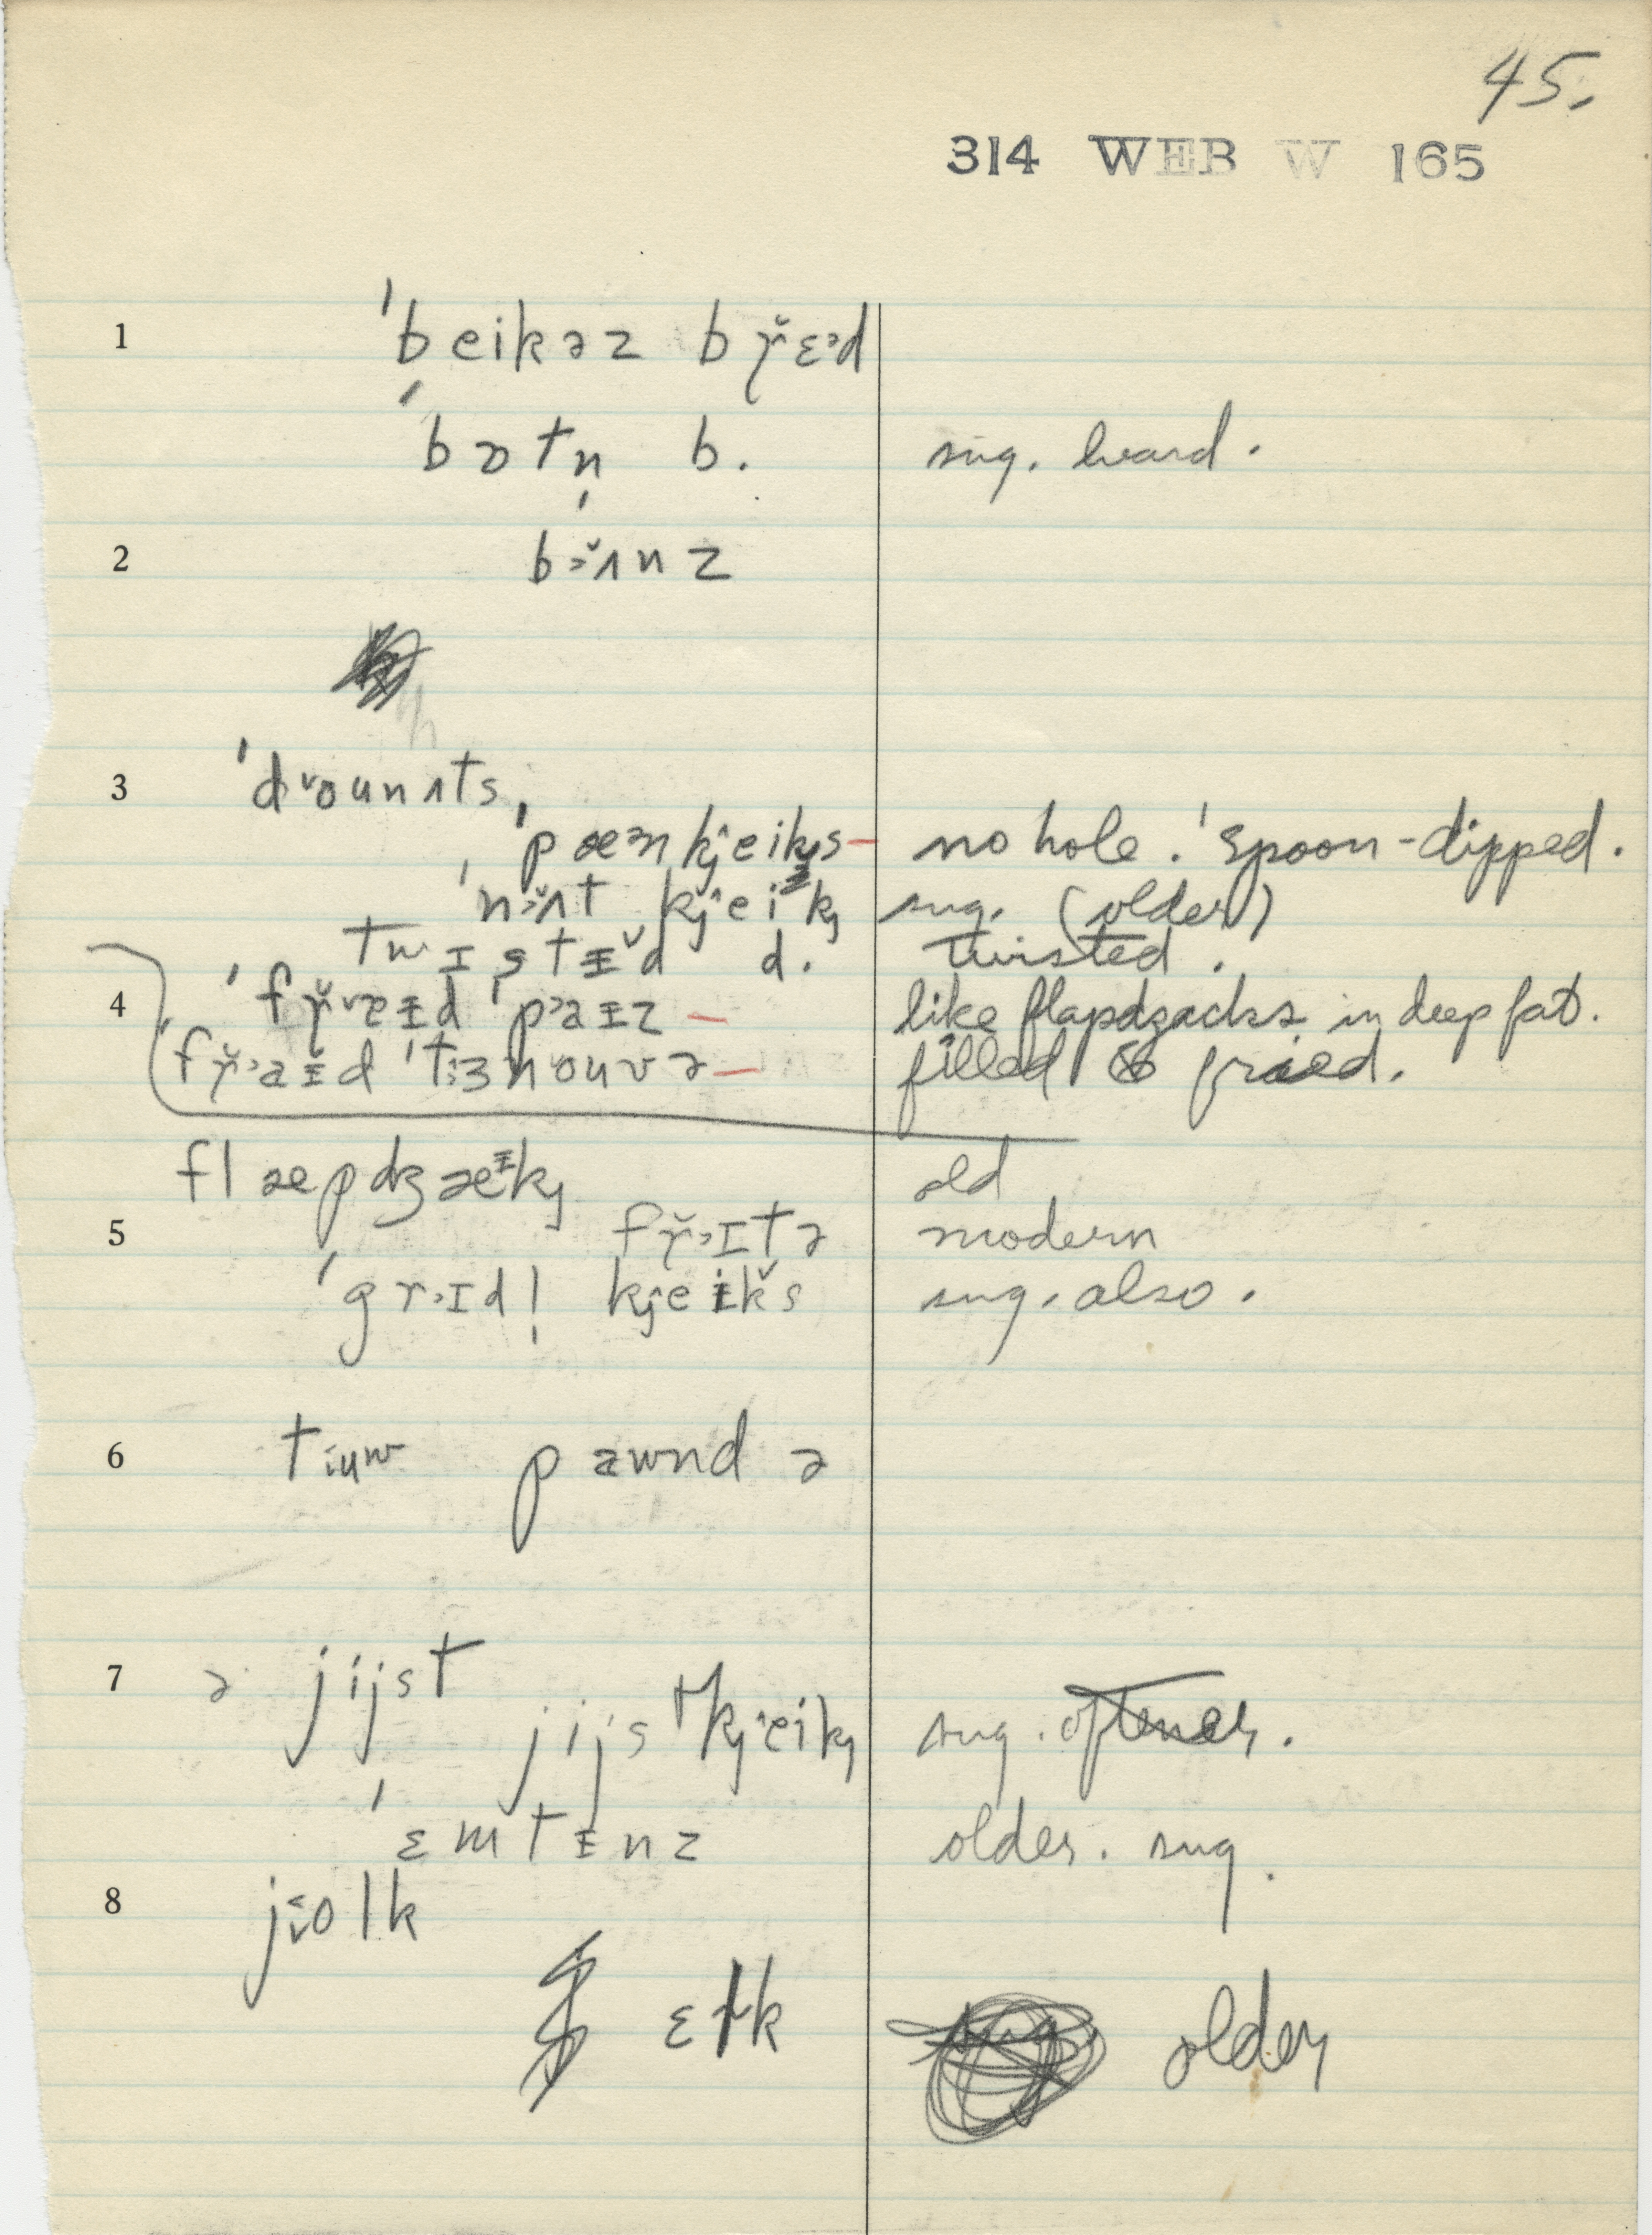 45.
314 WEB W 165
1 ˈbeikəz bɾ̌ɛ˃d
ˈbɒtn̩ b. sug. heard.
2 bɜ̌ʌnz
3 ˈd˅ounʌts,
ˈpæ˃nkj̑eikjs — no hole. 'spoon-dipped.
ˈnɜ̌ʌt kj̑eikj sug. (older)
twɪstɪ̵̌d d. twisted.
4 ˈfɾ̌˅ɐɪ̵d ˈp˃aɪ̵z — like flapdʒacks in deep fat.
ˈfɾ̌˃aɪ̵d ˈtɜ̩nouvə — filled & fried.
flæpdʒæᵻkj old
5 fɾ̌˃ɪtə modern
ˈgɾ˃ɪdl̩ kj̑eɪ̵ǩs sug. also.
6 tiuw pawnd ə
7 ə jijst
jijstkj̑eikj sug.
ˈɛmtɪ̵nz older. sug.
8 jǒlk
ɛɫk older